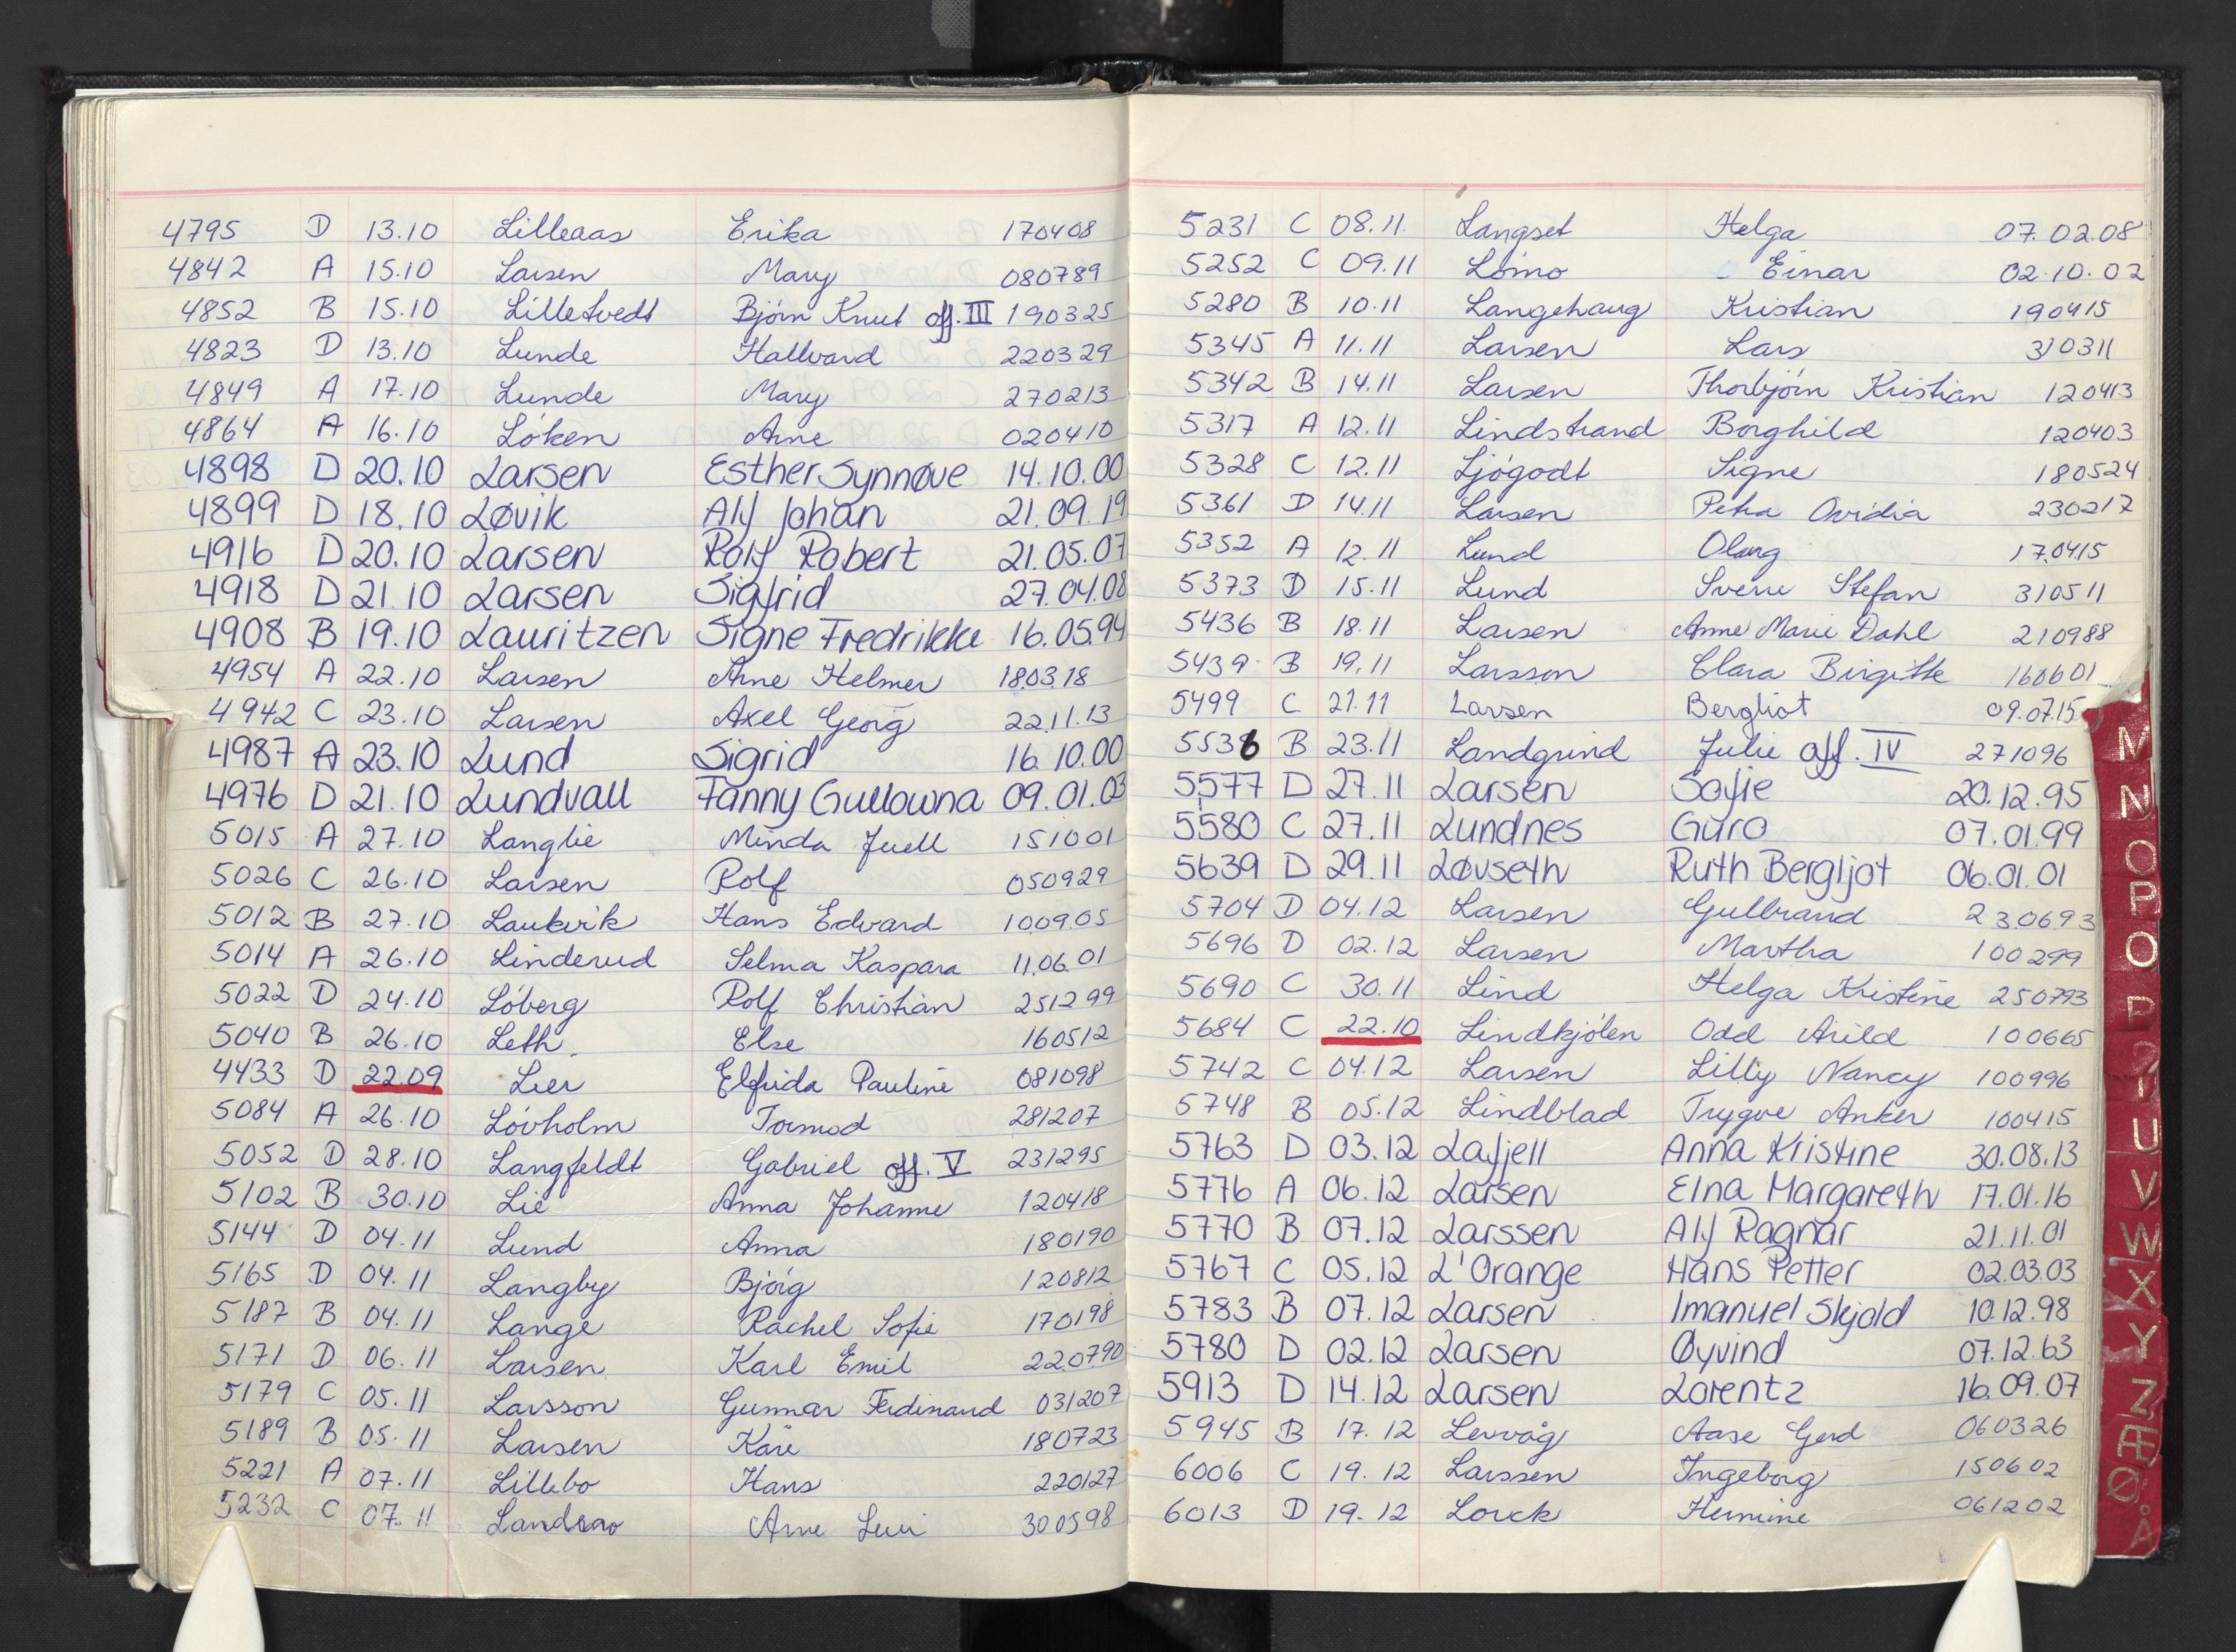 4795 D 13.10 Lilleaas Erika 170408
4842 A 15.10 Larsen Mary 080789
4852 B 15.10 Lilletvedt Bjørn Knut off. III 190325
4823 D 13.10 Lunde Hallvard 220329
4849 A 17.10 Lunde Mary 270213
4864 A 16.10 Løken Arne 020410
4898 D 20.10 Larsen Esther Synnøve 14.10.00
4899 D 18.10 Løvik Alf Johan 21.09.19
4916 D 20.10 Larsen Rolf Robert 21.05.07
4918 D 21.10 Larsen Sigfrid 27.04.08
4908 B 19.10 Lauritzen Signe Fredrikke 16.05.94
4954 A 22.10 Larsen Arne Helmer 18.03.18
4942 C 23.10 Larsen Axel Georg 22.11.13
4987 A 23.10 Lund Sigrid 16.10.00
4976 D 21.10 Lundvall Fanny Gullowna 09.01.03
5015 A 27.10 Langlie Minda Juell 151001
5026 C 26.10 Larsen Rolf 050929
5012 B 27.10 Laukvik Hans Edvard 10.09.05
5014 A 26.10 Linderud Selma Kaspara 11.06.01
5022 D 24.10 Løberg Rolf Christian 251299
5040 B 26.10 Leth Else 160512
4433 D 22.09 Lier Elfrida Pauline 081098
5084 A 26.10 Løvholm Tormod 281207
5052 D 28.10 Langfeldt Gabriel off. V 231295
5102 B 30.10 Lie Anna Johanne 120418
5144 D 04.11 Lund Anna 180190
5165 D 04.11 Langby Bjørg 120812
5187 B 04.11 Lange Rachel Sofie 170198
5171 D 06.11 Larsen Karl Emil 220790
5179 C 05.11 Larsson Gunnar Ferdinand 031207
5189 B 05.11 Larsen Kåre 180723
5221 A 07.11 Lillebo Hans 220127
5232 C 07.11 Landsao Arne 300598
5231 C 08.11 Langset Helga 07.02.08
5252 C 09.11 Lømo Einar 02.10.02
5280 B 10.11 Langehaug Kristian 190415
5345 A 11.11 Larsen Lars 310311
5342 B 14.11 Larsen Thorbjørn Kristian 120413
5317 A 12.11 Lindstrand Borghild 120403
5328 C 12.11 Ljøgodt Signe 180524
5361 D 14.11 Larsen Petra Ovidia 230217
5352 A 12.11 Lund Olaug 170415
5373 D 15.11 Lund Sverre Stefan 310511
5436 B 18.11 Larsen Anne Marie Dahl 210988
5439 B 19.11 Larsson Clara Birgitte 160601
5499 C 21.11 Larsen Bergliot 09.07.15
5536 B 23.11 Landgrind Julie off. IV 271096
5577 D 27.11 Larsen Sofie 20.12.95
5580 C 27.11 Lundnes Guro 07.01.99
5639 D 29.11 Løvseth Ruth Bergljot 06.01.01
5704 D 04.12 Larsen Gulbrand 230693
5696 D 02.12 Larsen Martha 100299
5690 C 30.11 Lind Helga Kristine 250793
5684 C 22.10 Lindkjølen Odd Arild 100665
5742 C 04.12 Larsen Lilly Nancy 100996
5748 B 05.12 Lindblad Trygve Anker 100415
5763 D 03.12 Lafjell Anna Kristine 30.08.13
5776 A 06.12 Larsen Elna Margareth 17.01.16
5770 B 07.12 Larssen Alf Ragnar 21.11.01
5767 C 05.12 L'Orange Hans Petter 02.03.03
5783 B 07.12 Larsen Imanuel Skjold 10.12.98
5780 D 02.12 Larsen Øyvind 07.12.63
5913 D 14.12 Larsen Lorentz 16.09.07
5945 B 17.12 Lervåg Aase Gerd 060326
6006 C 19.12 Larssen Ingeborg 150602
6013 D 19.12 Lorck Hermine 061202
M
N
O
P
O
P
U
V
W
X
Y
Z
Æ
Ø
Å